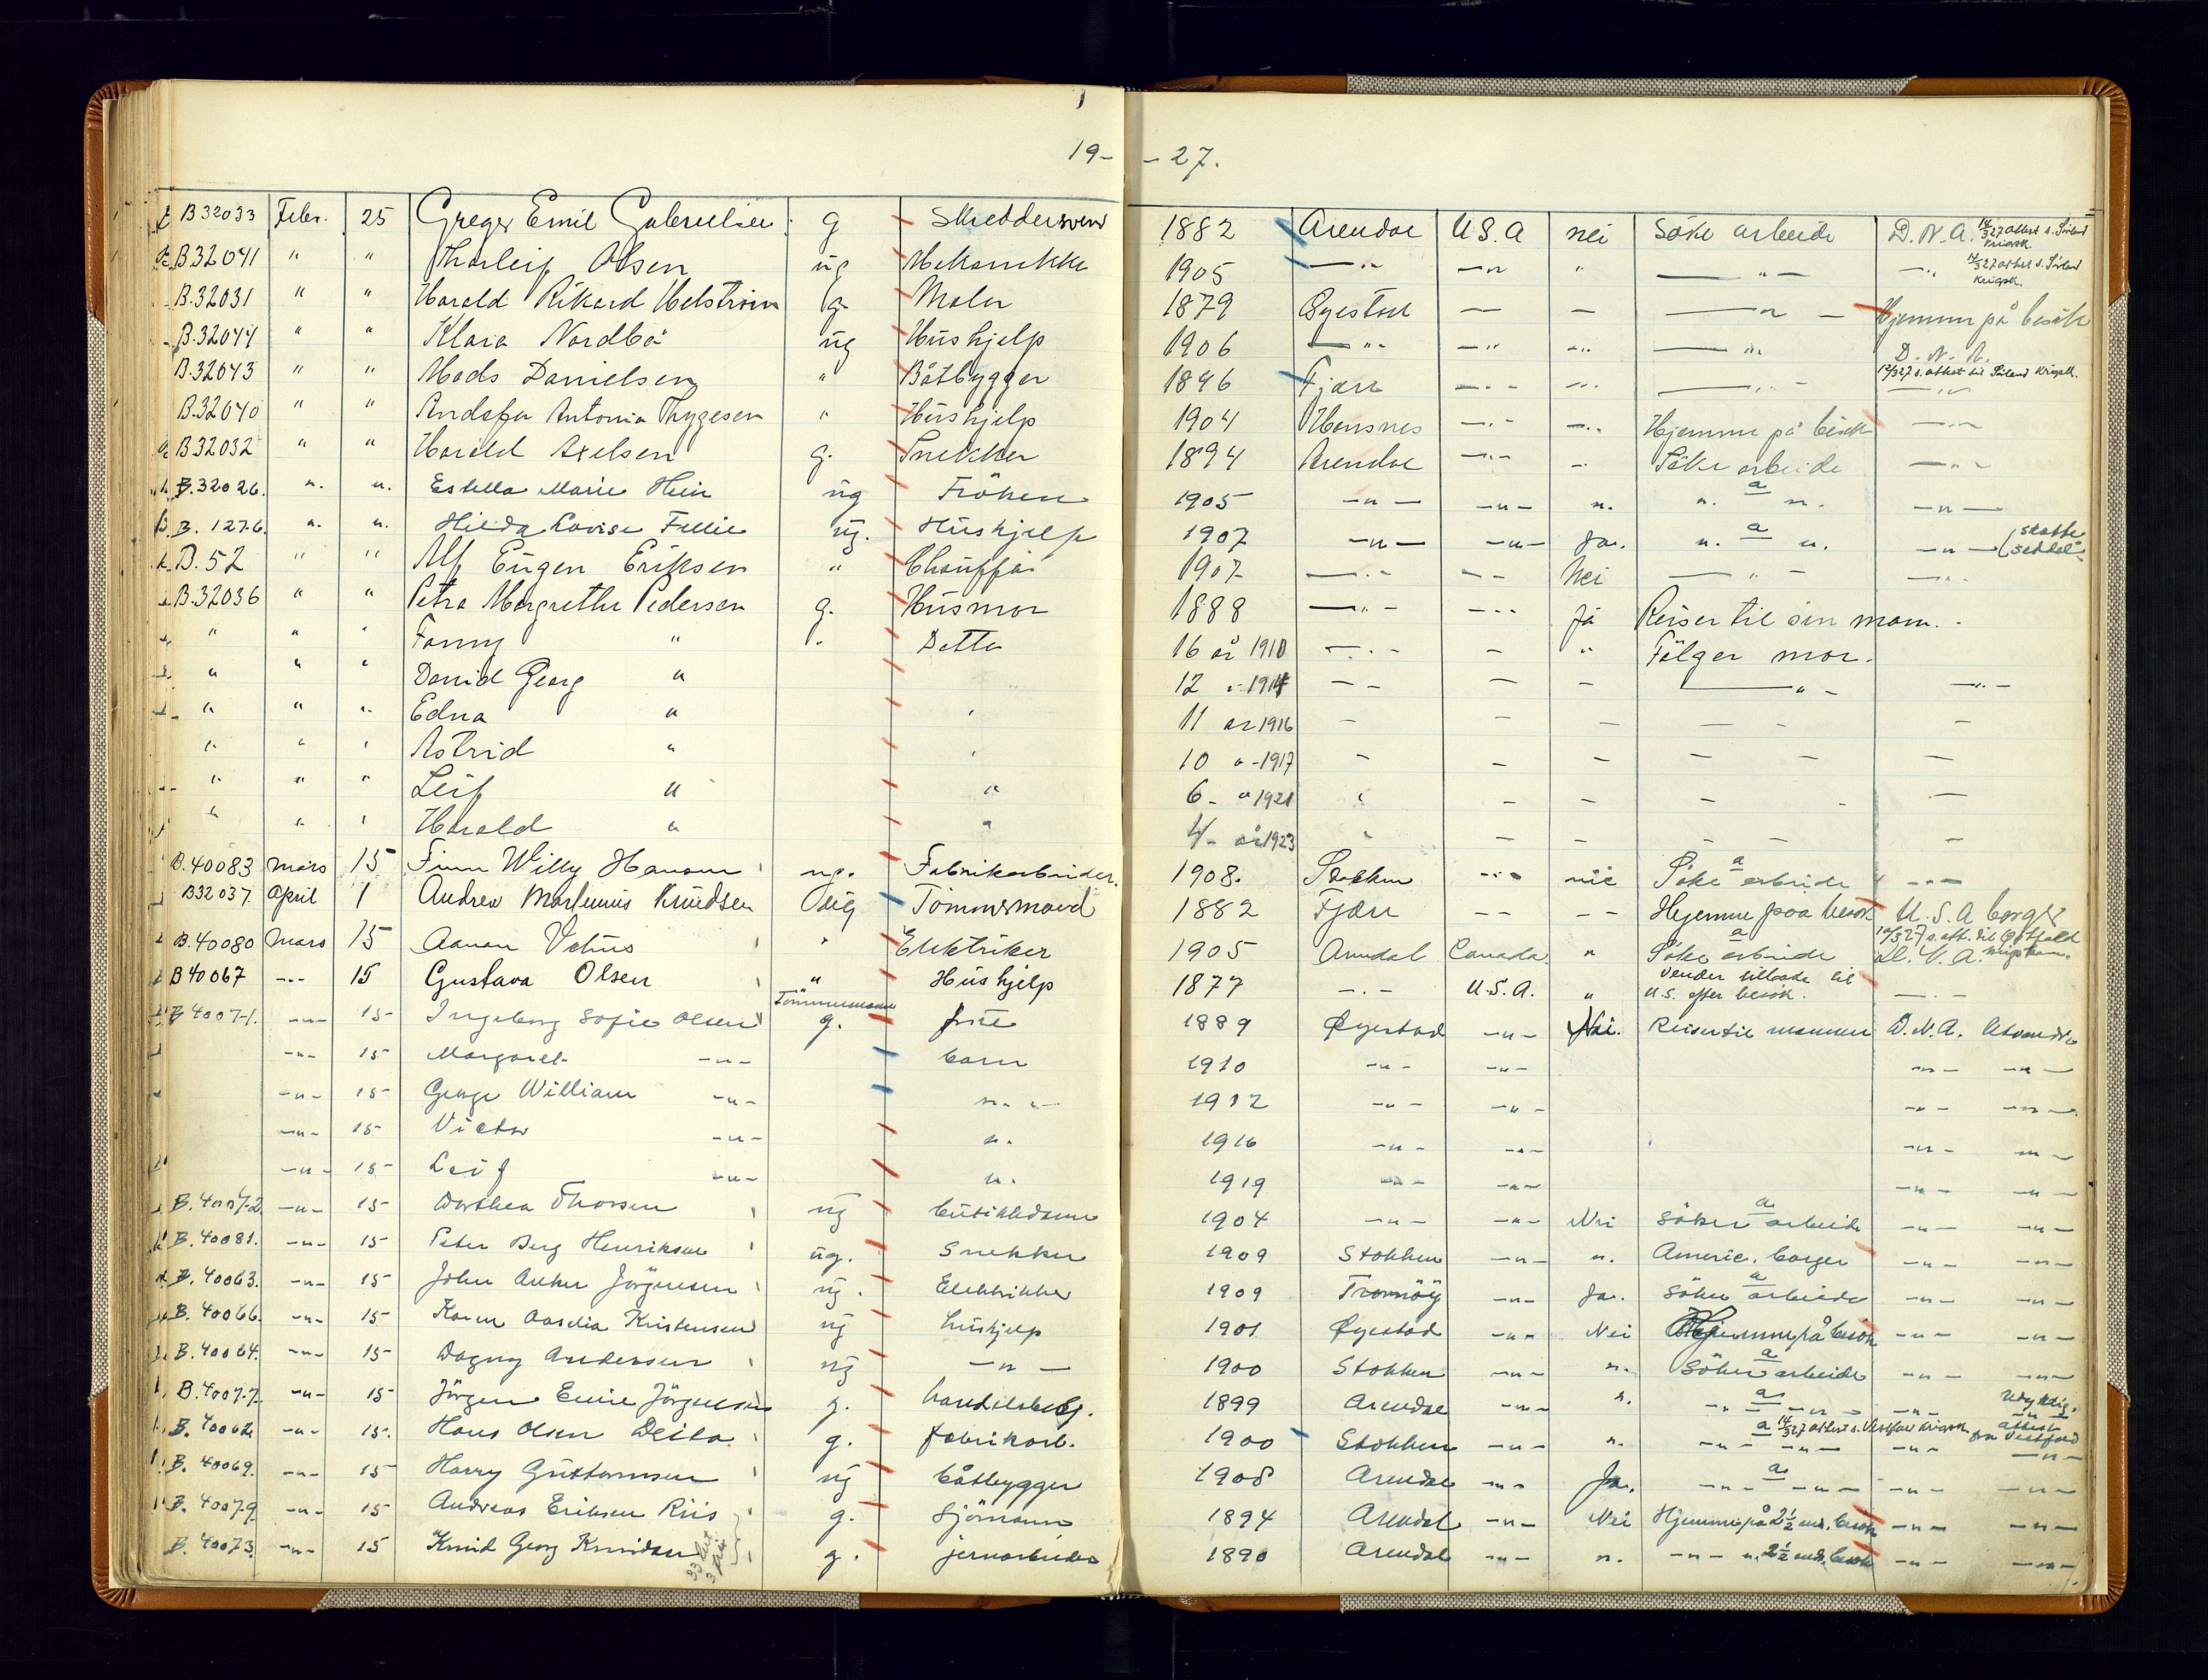 19- -27.
B32033 Febr. 25 Greger Emil Gabrielsen g Skreddersven 1882 Arendal U.S.A nei Söke arbeide D.N.A. 14/3 27 attest s. Sörland Krigsk.
B.32041 " " Thorleif Olsen ug Mekanikke 1905 —"— —"— " —"— —"— 14/3 27 attest s. Sörland Krigsk.
B.32031 " " Harald Rikard Helström g. Maler 1879 Öyestad — — —"— Hjemme på besök
B.32044 " " Klara Nordbö ug Hushjelp 1906 —"— —"— —"— —"— D.N.A.
B.32043 " " Mads Danielsen " Båtbygger 1896 Fjære —"— —"— —"— 12/3 27 s. attest til Sörland Krigsk. —"—
B.32040 " " Antonia Thygesen " Hushjelp 1904 —"— —"— Hjemme på besök —"—
B32032 " " Harald Axelsen g. Snekker 1894 Arendal —"— — Söke arbeide —"—
B.32026. " " Estella Marie Hein ug Fröken 1905 —"— —"— ". ". a ". —"—
B. 1276. " " Hilda Lovise ug. Hushjelp 1907 —"— —"— Ja. ". a ". —"— (skatte seddel
B.52 " " Alf Eugen Eriksen " Chauffør 1907 —"— —"— Nei —"— —"—
B.32036 " " Petra Margrethe Pedersen g. Husmor 1888 —"— —"— Ja Reiser til sin mann.
" " " Fanny " Datter 16 år 1910 —"— — " Fölger mor.
" " " David Georg " 12 "-1914 — — — —"— —"—
" " " Edna " " 11 år 1916 — — — — —
" " " Astrid " " 10 "-1917 — — — — —
" " " Leif " " 6- " 1921 " — — — —
" " " Harald " " 4- år 1923 " — — — —
B.40083 Mars 15 Finn Willy Hansen ug. Fabrikarbeider. 1908. Stokken —"— nei Söke a arbeide —"—
B32037. April 1 Andrew Martinius Knudsen Tömmermand 1882 Fjære — — — — Hjemme paa besök U.S.A borger
B.40080 Mars 15 Aanon Vetius " Elektriker 1905 Arendal Canada. " Söke a arbeide 10/3 27 s. att. til Østfold D.N.A. Krigskom.
B40067 —"— 15 Gustava Olsen " Hushjelp 1877 —"— U.S.A. " Vender tilbake til U.S. efter besök. —"—
B 40071. —"— 15 Ingeborg Sofie Olsen Tömmermann g. frue 1889 Øyestad —"— Nei. Reiser til mannen D.N.A. Utvandre
—"— 15 Margaret —"— barn 1910 —"— —"— —"— —"—
—"— 15 George William —"— ". " 1912 —"— —"— —"— —"—
—"— 15 Victor —"— ". 1916 —"— —"— —"— —"—
—"— 15 Leif —"— ". 1919 —"— —"— —"— —"—
B.40072. —"— 15 Dorthea Thorsen ug butikkdame 1904 —"— —"— Nei söker a arbeide —"— —"—
B.40081. —"— 15 Peter Berg Henriksen ug. Snekker 1909 Stokken —"— ". Americ. borger —"— —"—
B.40063. —"— 15 John Anker Jörgensen ug. Elektrikker 1909 Tromöy —"— Ja. söker a arbeide —"— —"—
B.40066. —"— 15 Karen Aaselia Kristensen ug hushjelp 1901 Øyestad —"— Nei Hjemme på besök —"— —"—
B.40064. —"— 15 Dagny Andersen ug —"— 1900 Stokken —"— ". söker a arbeide —"— —"—
B.40077. —"— 15 Jörgen Emil Jörgensen g. handelsbetj. 1899 Arendal —"— ". —"— a —"— —"— —"—
B.40062. —"— 15. Hans Olsen g. fabrikarb. 1900 Stokken —"— ". —"— a —"— 14/3 27 attest s. Vestfold Krigsk. —"— attest fra Vestfold —"—
B.40069. —"— 15 Harry Guttormsen ug båtbygger 1908 Arendal —"— Ja. —"— a —"— —"— —"—
B.40079. —"— 15 Andreas Eriksen Riis g. Sjömann 1894 Arendal —"— Nei Hjemme på 2½ md. besök —"— —"—
B.40073. —"— 15 Knud Georg Knudsen g. jernarbeider 1890 Arendal —"— ". —"— ". 2½ md. besök —"— —"—